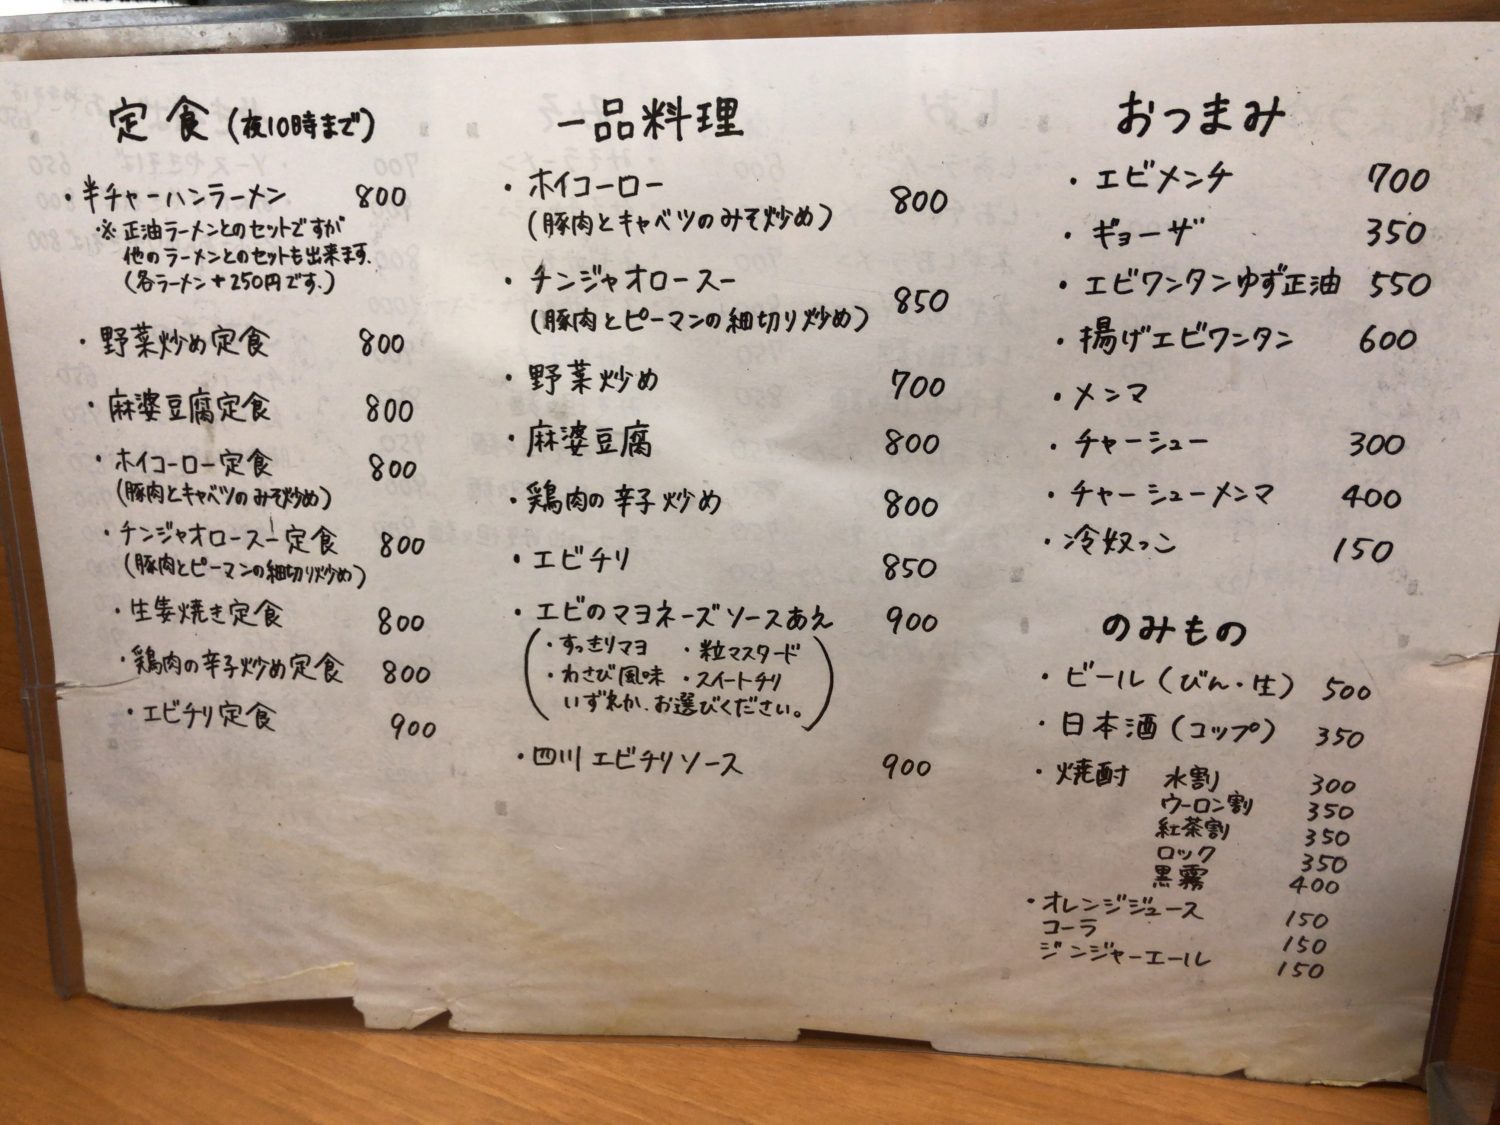 定食(夜10時まで)
・半チャーハンラーメン 800
※正油ラーメンとのセットですが
他のラーメンとのセットも出来ます.
(各ラーメン+250円です.)
・野菜炒め定食 800
・麻婆豆腐定食 800
・ホイコーロー定食 800
(豚肉とキャベツのみそ炒め)
・チンジャオロースー定食 800
(豚肉とピーマンの細切り炒め)
・生姜焼き定食 800
・鶏肉の辛子炒め定食 800
・エビチリ定食 900
一品料理
・ホイコーロー 800
(豚肉とキャベツのみそ炒め)
・チンジャオロースー 850
(豚肉とピーマンの細切り炒め)
・野菜炒め 700
・麻婆豆腐 800
・鶏肉の辛子炒め 800
・エビチリ 850
・エビのマヨネーズソースあえ 900
・すっきりマヨ ・粒マスタード
・わさび風味 ・スイートチリ
いずれか、お選びください。
・四川エビチリソース 900
おつまみ
・エビメンチ 700
・ギョーザ 350
・エビワンタンゆず正油 550
・揚げエビワンタン 600
・メンマ
・チャーシュー 300
・チャーシューメンマ 400
・冷奴っこ 150
のみもの
・ビール(びん・生) 500
・日本酒(コップ) 350
・焼酎 水割 300
ウーロン割 350
紅茶割 350
ロック 350
黒霧 400
・オレンジジュース 150
コーラ 150
ジンジャーエール 150